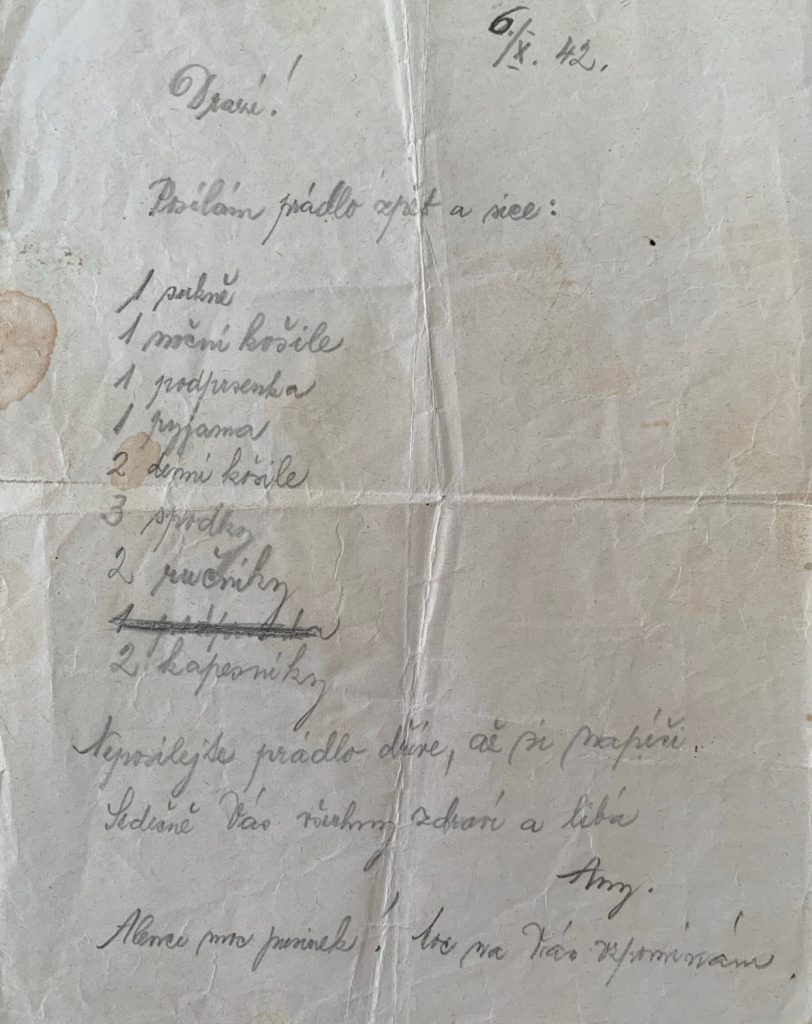 6./X. 42.
Drazí!
Posílám prádlo zpět a sice:
1 sukně
1 noční košile
1 podprsenka
1 pyjama
2 denní košile
3 spodky
2 ručníky
2 kapesníky
Neposílejte prádlo dříve, až si napíši.
Srdečně Vás všechny zdraví a líbá
Any.
Alence moc pusinek! Moc na Vás vzpomínám.